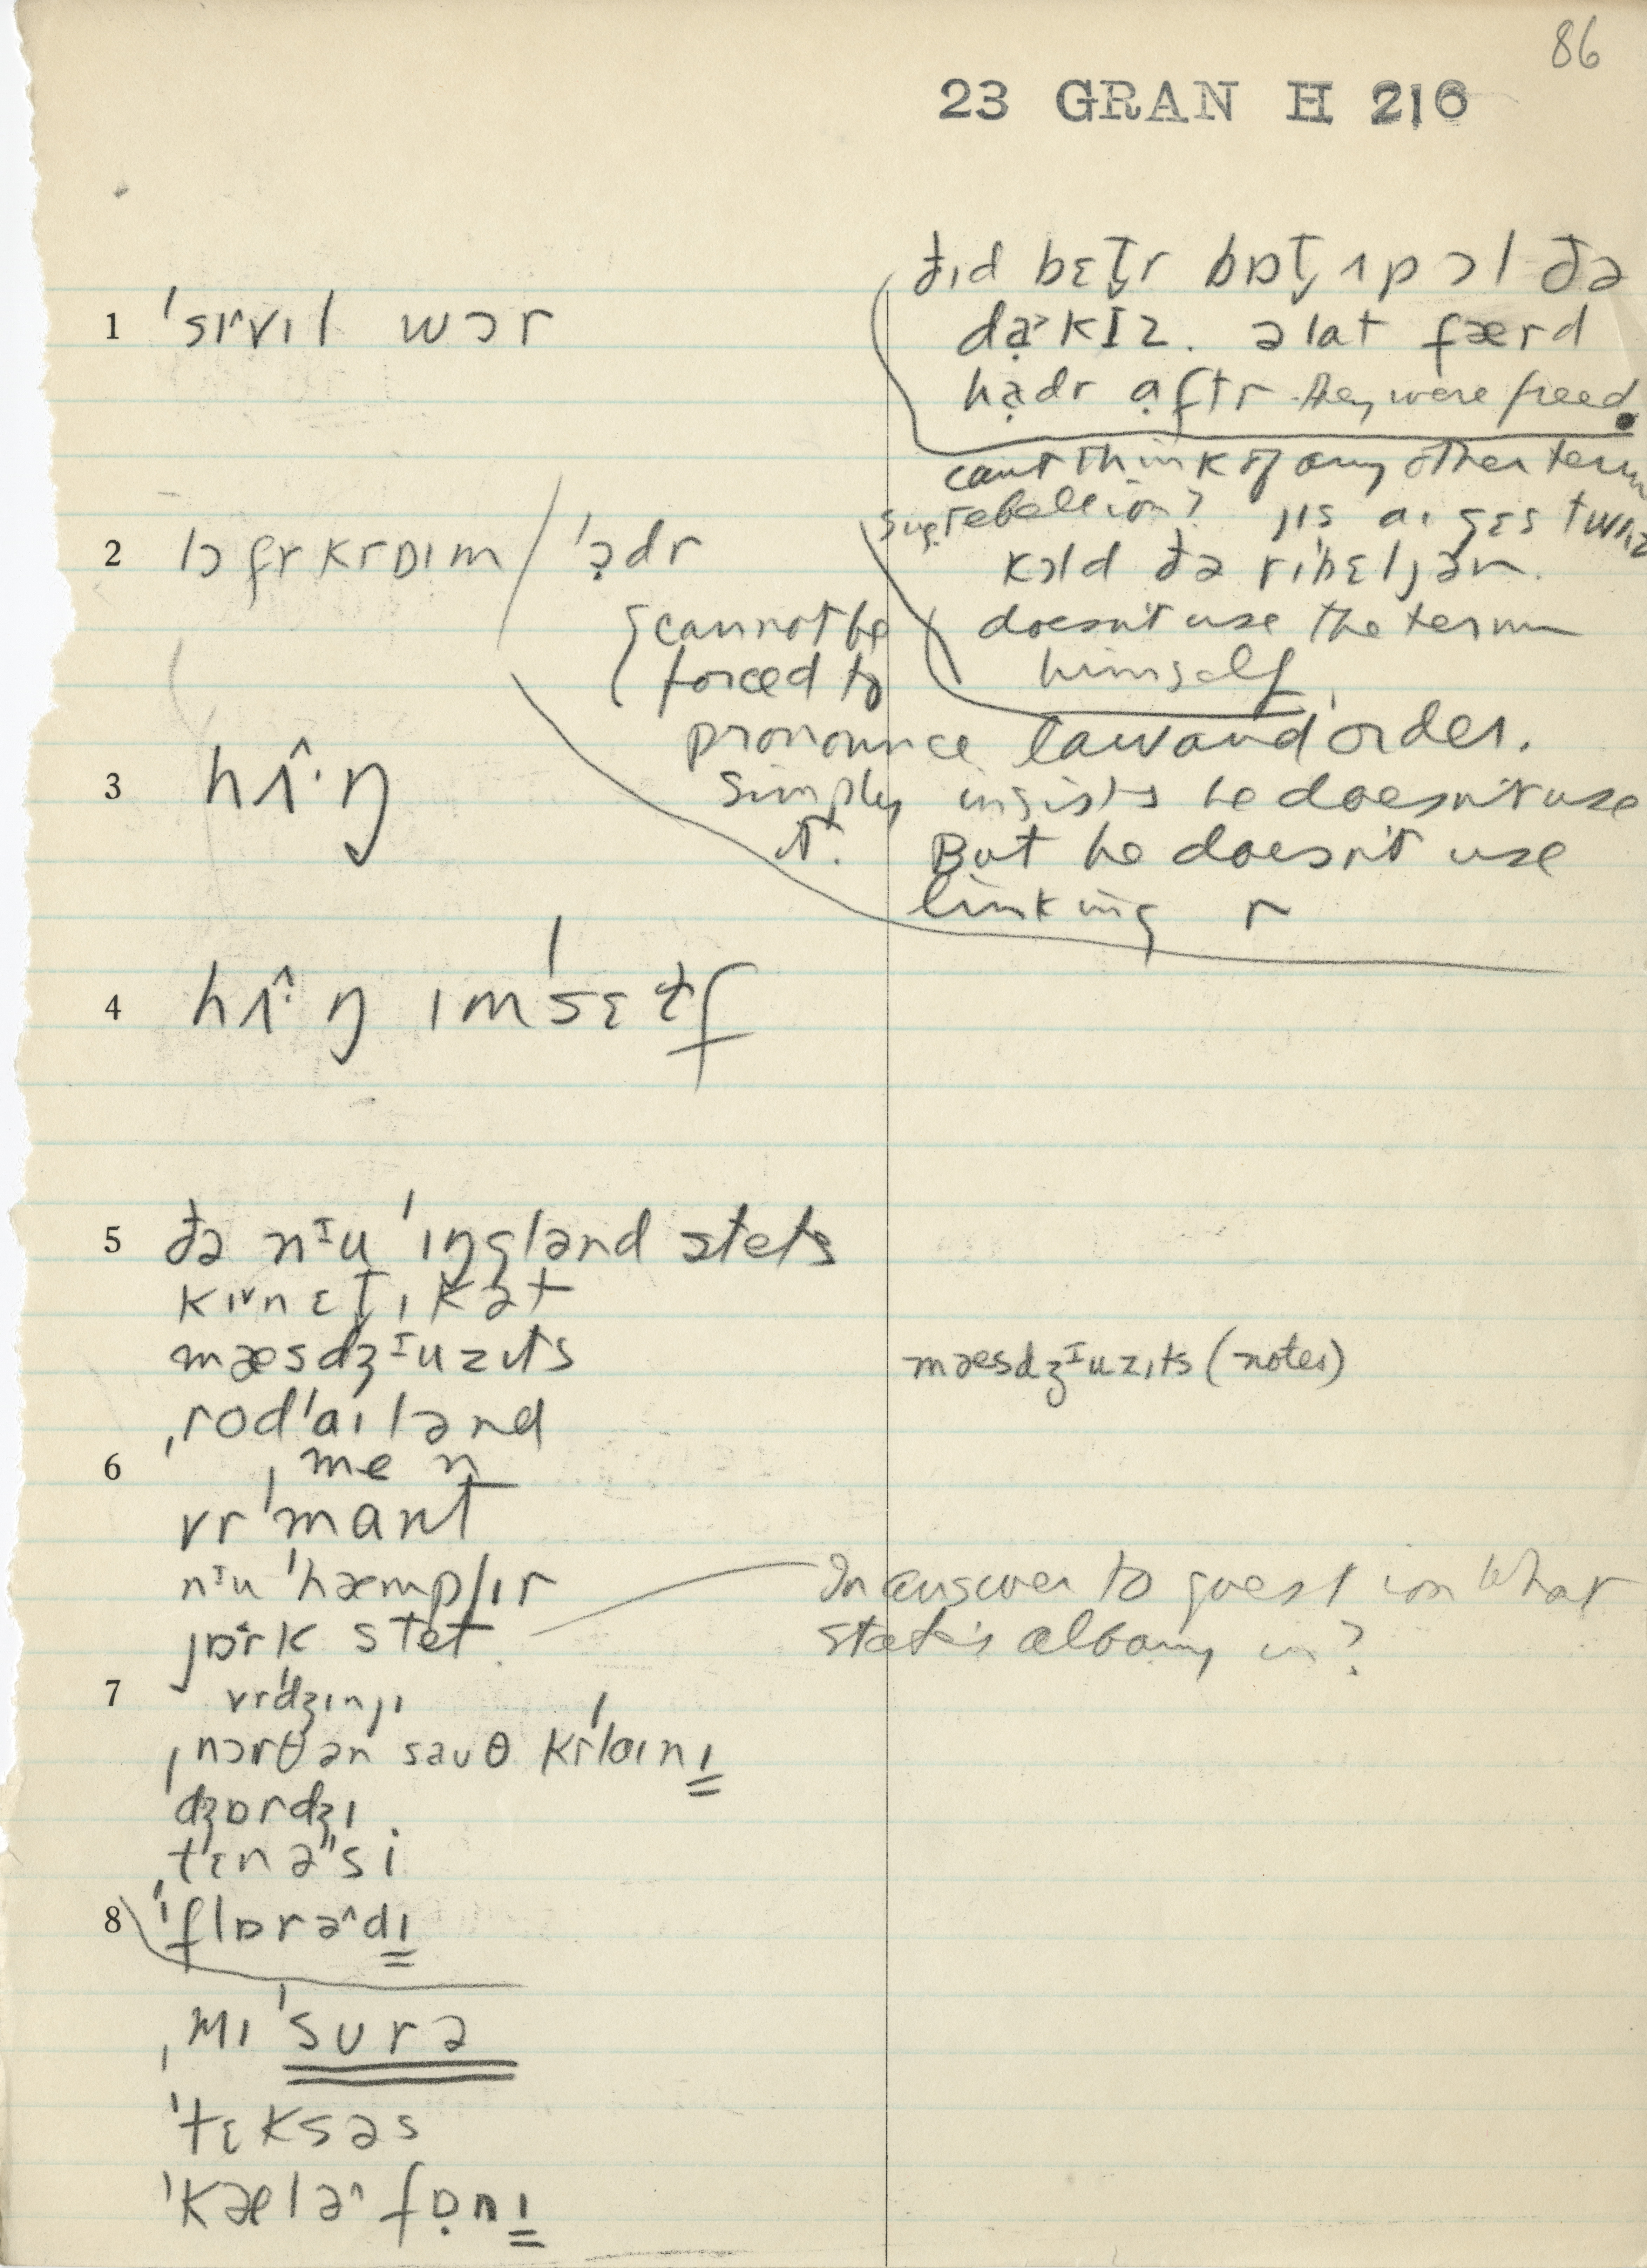 86
23 GRAN H 216
1 ˈsɪvɪl wɔr
ðɪd bɛt̬r bɒt̬ ʌp ɔl ðə
də̣ʳkɪz. ə lɑt færd
hạdr ạftr they were freed.
can't think of any other term
sug. rebellion? jɪs aɪ gɛs twɪz
kɔld ðə rɪˈbɛljən.
doesn't use the term
himself.
2 lɔ fr krɒɪm / ˈɔ̣dr
cannot be
forced to
pronounce law and order.
simply insists he doesn't use
it. But he doesn't use
linking r
3 hʌ̂·ŋ
4 hʌ̂·ŋ ɪmˈsɛɫf
5 ðə nᶦu ˈɪŋglənd stets
kɪvnɛt̬ɪkət
mæsdʒᶦuzɪts
mæsdʒᶦuzɪts (notes)
ˌrodˈaɪlənd
6 ˌmen
vrˈmant
nᶦu ˈhæmpʃɪr
jɒrk stet
In answer to question what
state is albany in?
7 vrˈdʒɪnjɪ
ˌnɔrθ ən sauθ krˈlaɪnɪ
ˈdʒɒrdʒɪ
ˌtɛnəˈsi
8 ˈflɒrə^dɪ
ˌmɪˈsurə
ˈtɛksəs
ˈkælə^fɒ̣nɪ